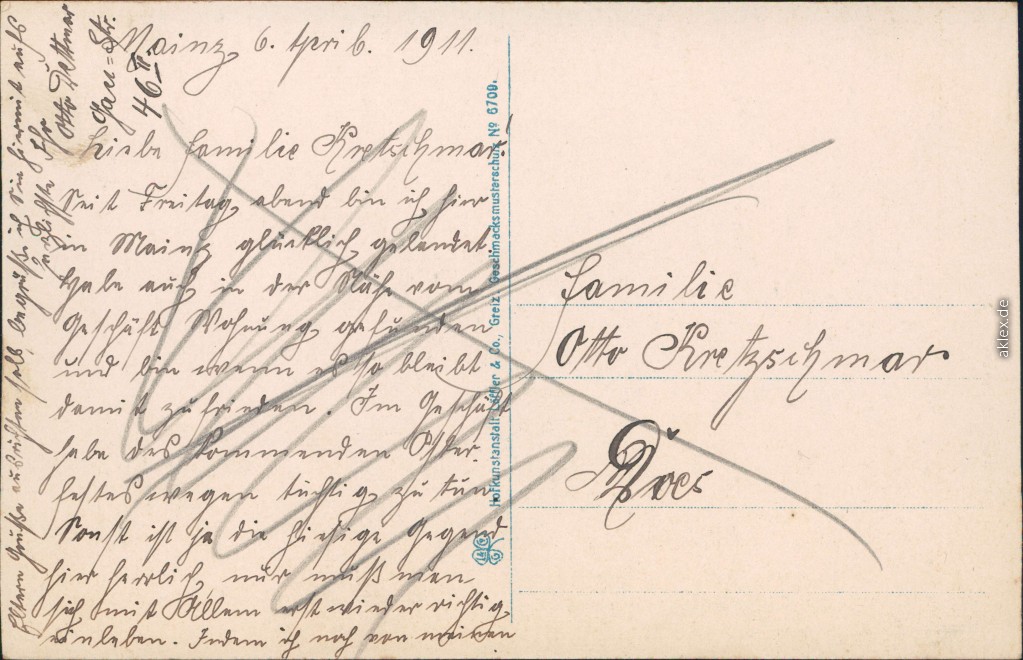 Mainz, 6. April. 1911.
Liebe Familie Kretschmar!
Seit Freitag abend bin ich hier
in Mainz glücklich gelandet.
Habe auch in der Nähe vom
Geschäft Wohnung gefunden
und bin wenn es so bleibt
damit zufrieden. Im Geschäft
habe des kommenden Oster-
festes wegen tüchtig zu tun.
Sonst ist ja die hiesige Gegend
hier herrlich, nur muß man
sich mit Allem erst wieder richtig
einleben. Indem ich noch von meinen
Eltern Grüße ausrichten soll, begrüße ich Sie hiermit aufs
herzlichste Ihr
Otto
Gau-Str.
46 II.
Hofkunstanstalt Löffler & Co., Greiz. Geschmacksmusterschutz № 6709.
Familie
Otto Kretzschmar
aklex.de